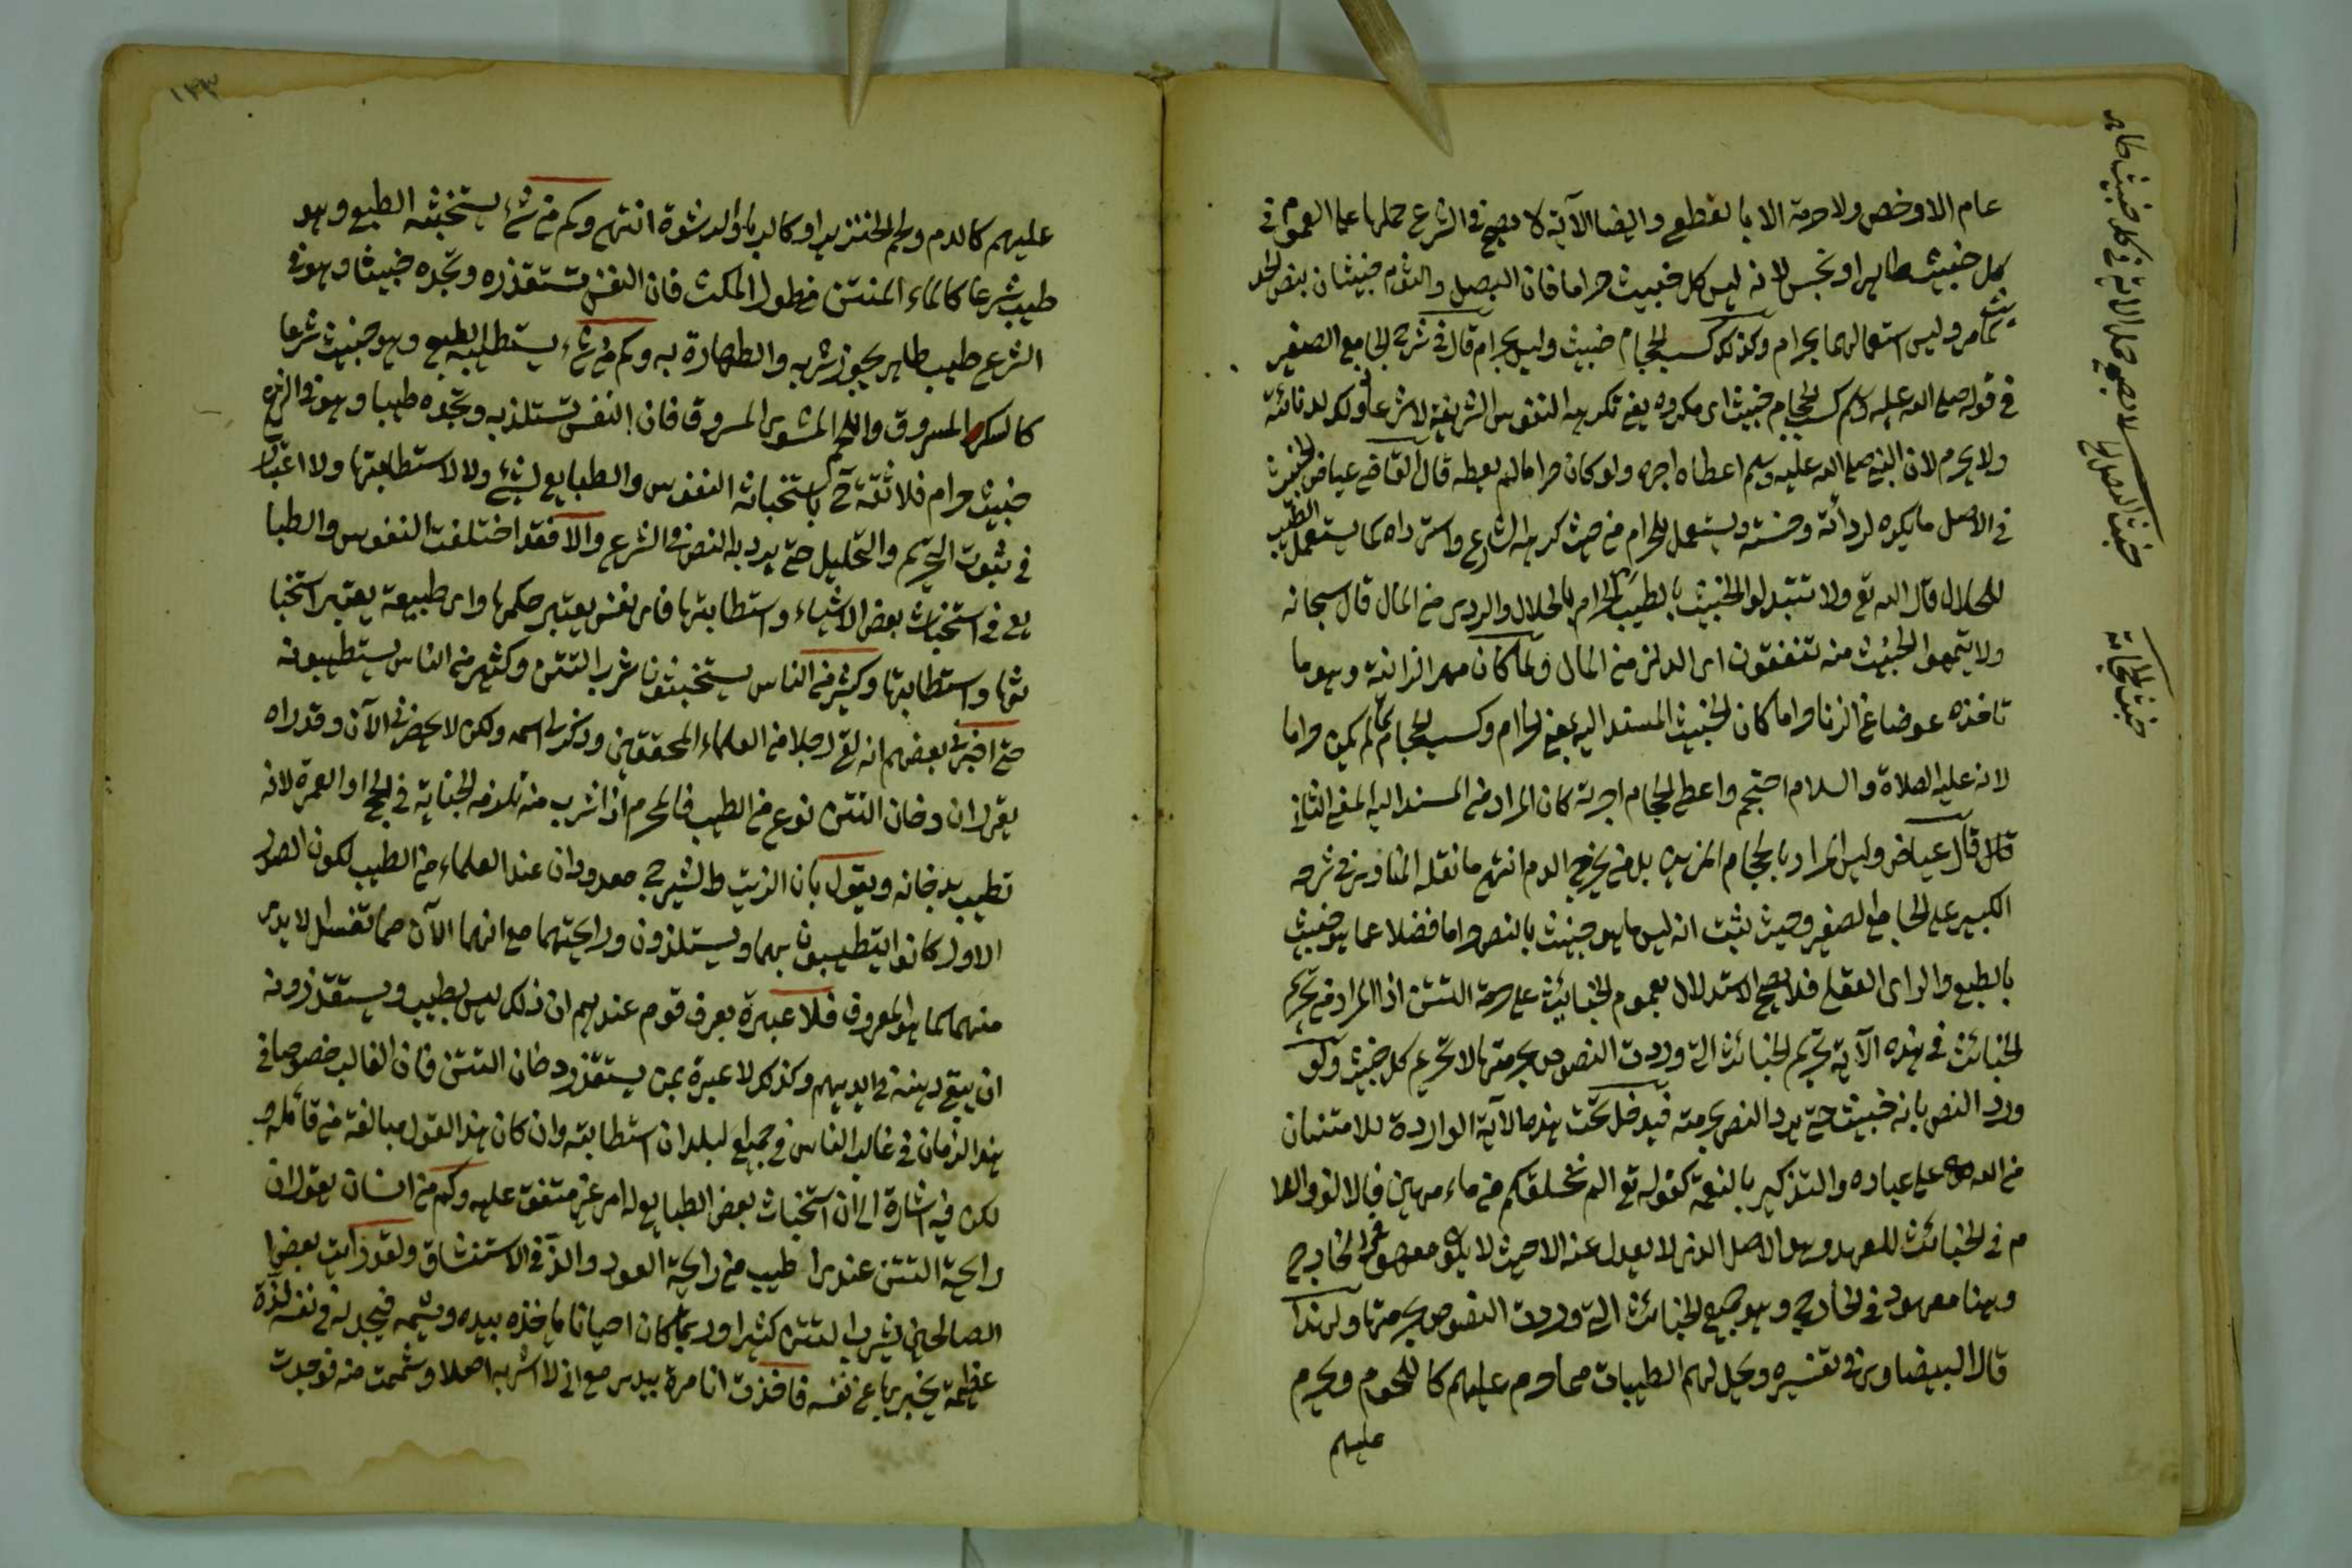 عام الا وخص ولا حرمة الا بالقطع وايضا الآية لا يصح في الشرع حملها على العموم في
كل خبيث طاهر او نجس لانه ليس كل خبيث حراما فان البصل والثوم خبيثان بنص الحديث
كما مر وليس استعمالهما بحرام وكذلك كسب الحجام خبيث وليس بحرام قال في شرح الجامع الصغير
في قوله صلى الله عليه وسلم كسب الحجام خبيث اى مكروه يعني تكرهه النفوس الشريفة لا شرعا ولكن لدنائته
ولا يحرم لان النبي صلى الله عليه وسلم اعطاه اجره ولو كان حراما لم يعطه قال القاضي عياض الخبيث
في الاصل ما يكره لردائته وخسته ويستعمل للحرام من حيث كرهه الشارع واسترداه كما يستعمل الطيب
للحلال قال الله تع ولا تتبدلوا الخبيث بالطيب الحرام بالحلال والردى من المال قال سبحانه
ولا تيمموا الخبيث منه تنفقون اى الدنى من المال ولما كان مهر الزانية وهو ما
تاخذه عوضا عن الزنا حراما كان الخبيث المسند اليه بمعنى الحرام وكسب الحجام لما لم يكن حراما
لانه عليه الصلاة والسلام احتجم واعطى الحجام اجرته كان المراد من المسند اليه المعنى الثاني
قال قال عياض وليس المراد بالحجام المزين بل من يخرج الدم انتهى ما نقله المناوى في شرحه
الكبير على الجامع الصغير وحيث ثبت انه ليس ما هو خبيث بالنص حراما فضلا عما هو خبيث
بالطبع والراى العقلي فلا يصح الاستدلال بعموم الخبائث على حرمة التتن اذ المراد من تحريم
الخبائث في هذه الآية تحريم الخبائث التي وردت النصوص بحرمتها لا تحريم كل خبيث ولو
ورد النص بانه خبيث حتى يرد النص بحرمته فيدخل تحت هذه الآية الواردة للامتنان
من الله تع على عباده والتذكير بالنعمة كقوله تع الم نخلقكم من ماء مهين فالالف واللا
م في الخبائث للعهد وهو الاصل الذى لا يعدل عنه الا حيث لا يكون معهود في الخارج
وهنا معهود في الخارج وهو جميع الخبائث التي وردت النصوص بحرمتها ولهذا
قال البيضاوى في تفسيره ويحل لهم الطيبات مما حرم عليهم كالشحوم ويحرم
عليهم
خبيث طاهر
لا يصح حمل الآية في كل
خبث البصل
خبث الحجامة
١٣٣
عليهم كالدم ولحم الخنزير او كالربا والرشوة انتهى وكم من شئ يستخبثه الطبع وهو
طيب شرعا كالماء المنتن من طول المكث فان النفس تستقذره وتجده خبيثا وهو في
الشرع طيب طاهر يجوز شربه والطهارة به وكم من شئ يستطيبه الطبع وهو خبيث شرعا
كالسكر المسروق واللحم المشوى المسروق فان النفس تستلذ به وتجده طيبا وهو في الشرع
خبيث حرام فلا ثقة ح باستخباث النفوس والطبايع لشئ ولا لاستطابتها ولا اعتبار
في ثبوت التحريم والتحليل حتى يرد به النص في الشرع والا فقد اختلفت النفوس والطبا
يع في استخباث بعض الاشياء واستطابتها فاى نفس يعتبر حكمها واى طبيعة يعتبر استخبا
ثها واستطابتها وكثير من الناس يستخبثون شرب التتن وكثير من الناس يستطيبونه
حتى اخبرني بعضهم انه لقي رجلا من العلماء المحققين وذكر لي اسمه ولكن لا يحضرني الآن وقد راه
يقول ان دخان التتن نوع من الطيب فالمحرم اذا شرب منه تلزمه الجناية في الحج او العمرة لانه
تطيب بدخانه ويقول بان الزيت والشيرج معدودان عند العلماء من الطيب لكون الصدر
الاول كانوا يتطيبون بهما ويستلذون رايحتهما مع انهما الآن مما تغسل الايدى
منهما كما هو المعروف فلا عبرة بعرف قوم عندهم ان ذلك ليس بطيب ويستقذرونه
ان يبقى دهنه في ايديهم وكذلك لا عبرة بمن يستقذر دخان التتن فان الغالب خصوصا في
هذا الزمان في غالب الناس في جميع البلدان استطابته وان كان هذا القول مبالغة من قائله
لكن فيه اشارة الى ان استخباث بعض الطبايع له امر غير متفق عليه وكم من انسان يقول ان
رايحة التتن عندى اطيب من رايحة العود والذ في الاستنشاق ولقد رايت بعض
الصالحين يشرب التتن كثيرا وربما كان احيانا ياخذه بيده ويشمه فيجد له في نفسه لذة
عظيمة يخبر بها عن نفسه فاخذت انا مرة بيدى مع اني لا اشربه اصلا وشممت منه فوجدت